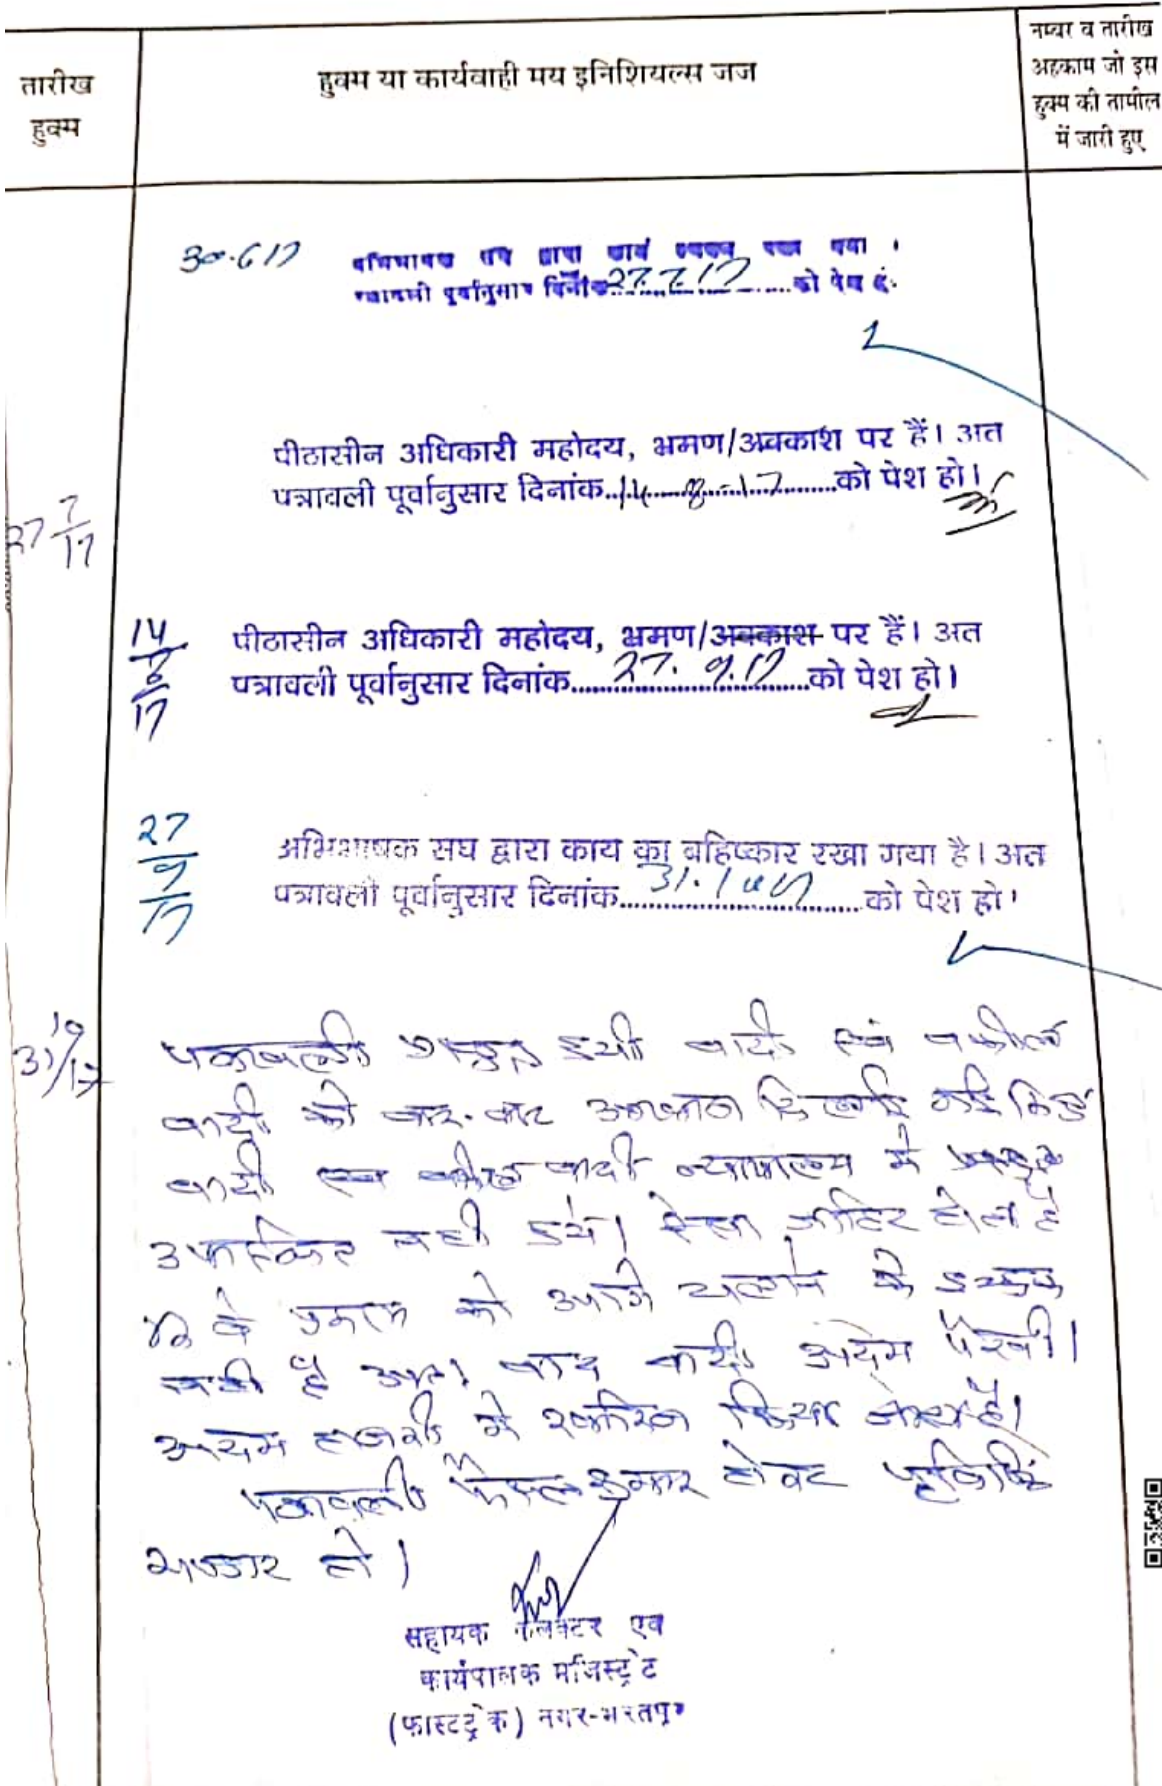 तारीख
हुक्म
हुक्म या कार्यवाही मय इनिशियल्स जज
नम्बर व तारीख
अहकाम जो इस
हुक्म की तामील
में जारी हुए
30.6.17
गया ।
पूर्वानुसार दिनांक 27.7.17 को पेश
27/7/17
पीठासीन अधिकारी महोदय, भ्रमण/अवकाश पर हैं। अत
पत्रावली पूर्वानुसार दिनांक..14-8-17..को पेश हो।
14/8/17
पीठासीन अधिकारी महोदय, भ्रमण/अवकाश पर हैं। अत
पत्रावली पूर्वानुसार दिनांक..27.9.17..को पेश हो।
27/9/17
अभिभाषक संघ द्वारा काय का बहिष्कार रखा गया है। अत
पत्रावली पूर्वानुसार दिनांक..31.10.17..को पेश हो।
31/10/17
पत्रावली प्रस्तुत हुयी वादी एवं वकील
वादी को बार-बार
वादी एवं वकील वादी न्यायालय में
उपस्थित नही हुये। ऐसा जाहिर होता है
कि वे प्रकरण को आगे चलाने के इच्छुक
नही है अतः वाद वादी अदम पैरवी।
अदम हाजरी मे खारिज किया जाता है।
पत्रावली फैसल शुमार होकर
हो।
सहायक कलेक्टर एवं
कार्यपालक मजिस्ट्रेट
(फास्टट्रेक) नगर-भरतपुर